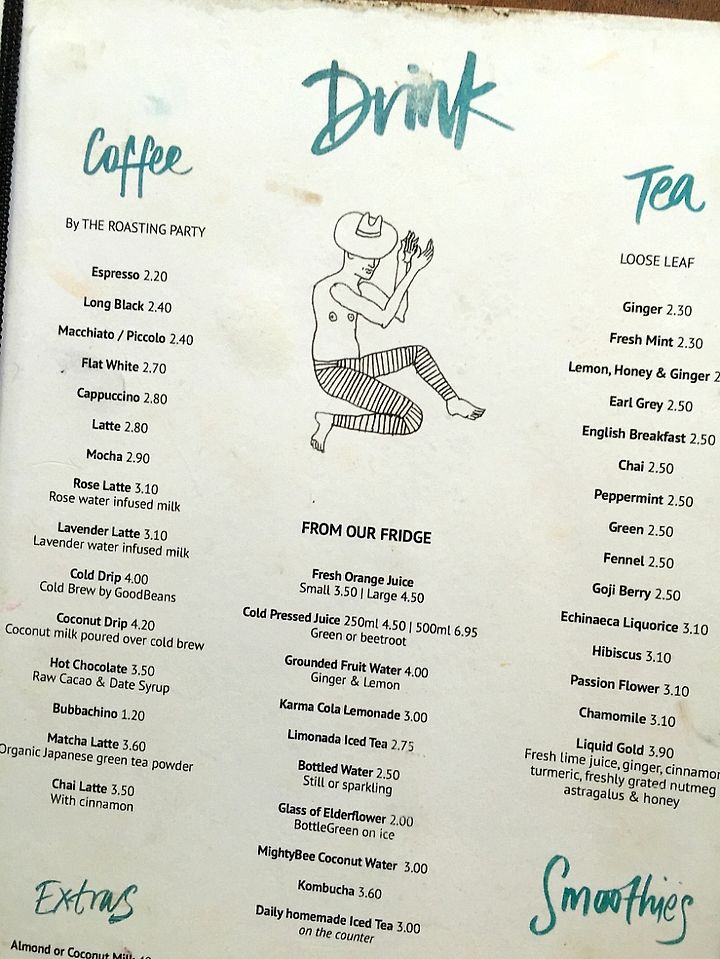 Drink
Coffee
By THE ROASTING PARTY
Espresso 2.20
Long Black 2.40
Macchiato / Piccolo 2.40
Flat White 2.70
Cappuccino 2.80
Latte 2.80
Mocha 2.90
Rose Latte 3.10
Rose water infused milk
Lavender Latte 3.10
Lavender water infused milk
Cold Drip 4.00
Cold Brew by GoodBeans
Coconut Drip 4.20
Coconut milk poured over cold brew
Hot Chocolate 3.50
Raw Cacao & Date Syrup
Bubbachino 1.20
Matcha Latte 3.60
Organic Japanese green tea powder
Chai Latte 3.50
With cinnamon
Extras
Almond or Coconut Milk
FROM OUR FRIDGE
Fresh Orange Juice
Small 3.50 | Large 4.50
Cold Pressed Juice 250ml 4.50 | 500ml 6.95
Green or beetroot
Grounded Fruit Water 4.00
Ginger & Lemon
Karma Cola Lemonade 3.00
Limonada Iced Tea 2.75
Bottled Water 2.50
Still or sparkling
Glass of Elderflower 2.00
BottleGreen on ice
MightyBee Coconut Water 3.00
Kombucha 3.60
Daily homemade Iced Tea 3.00
on the counter
Tea
LOOSE LEAF
Ginger 2.30
Fresh Mint 2.30
Lemon, Honey & Ginger 2
Earl Grey 2.50
English Breakfast 2.50
Chai 2.50
Peppermint 2.50
Green 2.50
Fennel 2.50
Goji Berry 2.50
Echinaeca Liquorice 3.10
Hibiscus 3.10
Passion Flower 3.10
Chamomile 3.10
Liquid Gold 3.90
Fresh lime juice, ginger, cinnamon
turmeric, freshly grated nutmeg
astragalus & honey
Smoothies